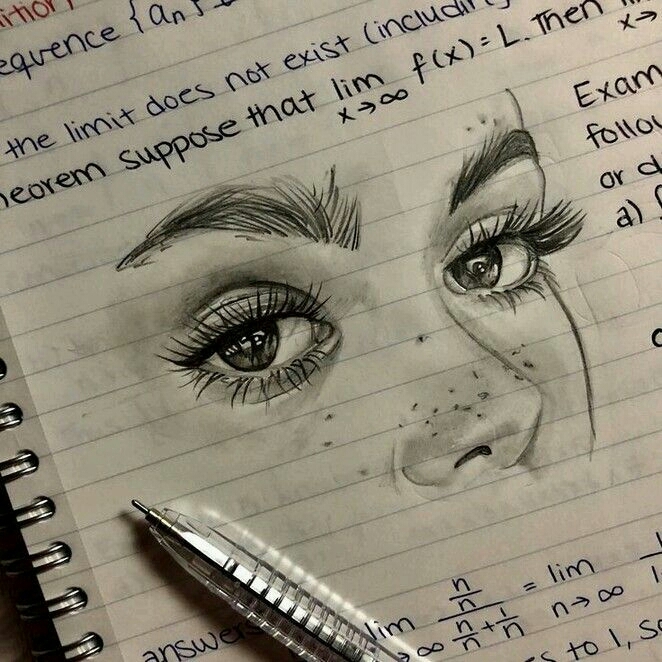 sequence {an}
the limit does not exist (including
Theorem suppose that lim x→∞ f(x)=L. Then
x→
Exam
follow
or d
a)
answer
lim ∞ n/n / n/n + 1/n = lim n→∞ 1
to 1, so